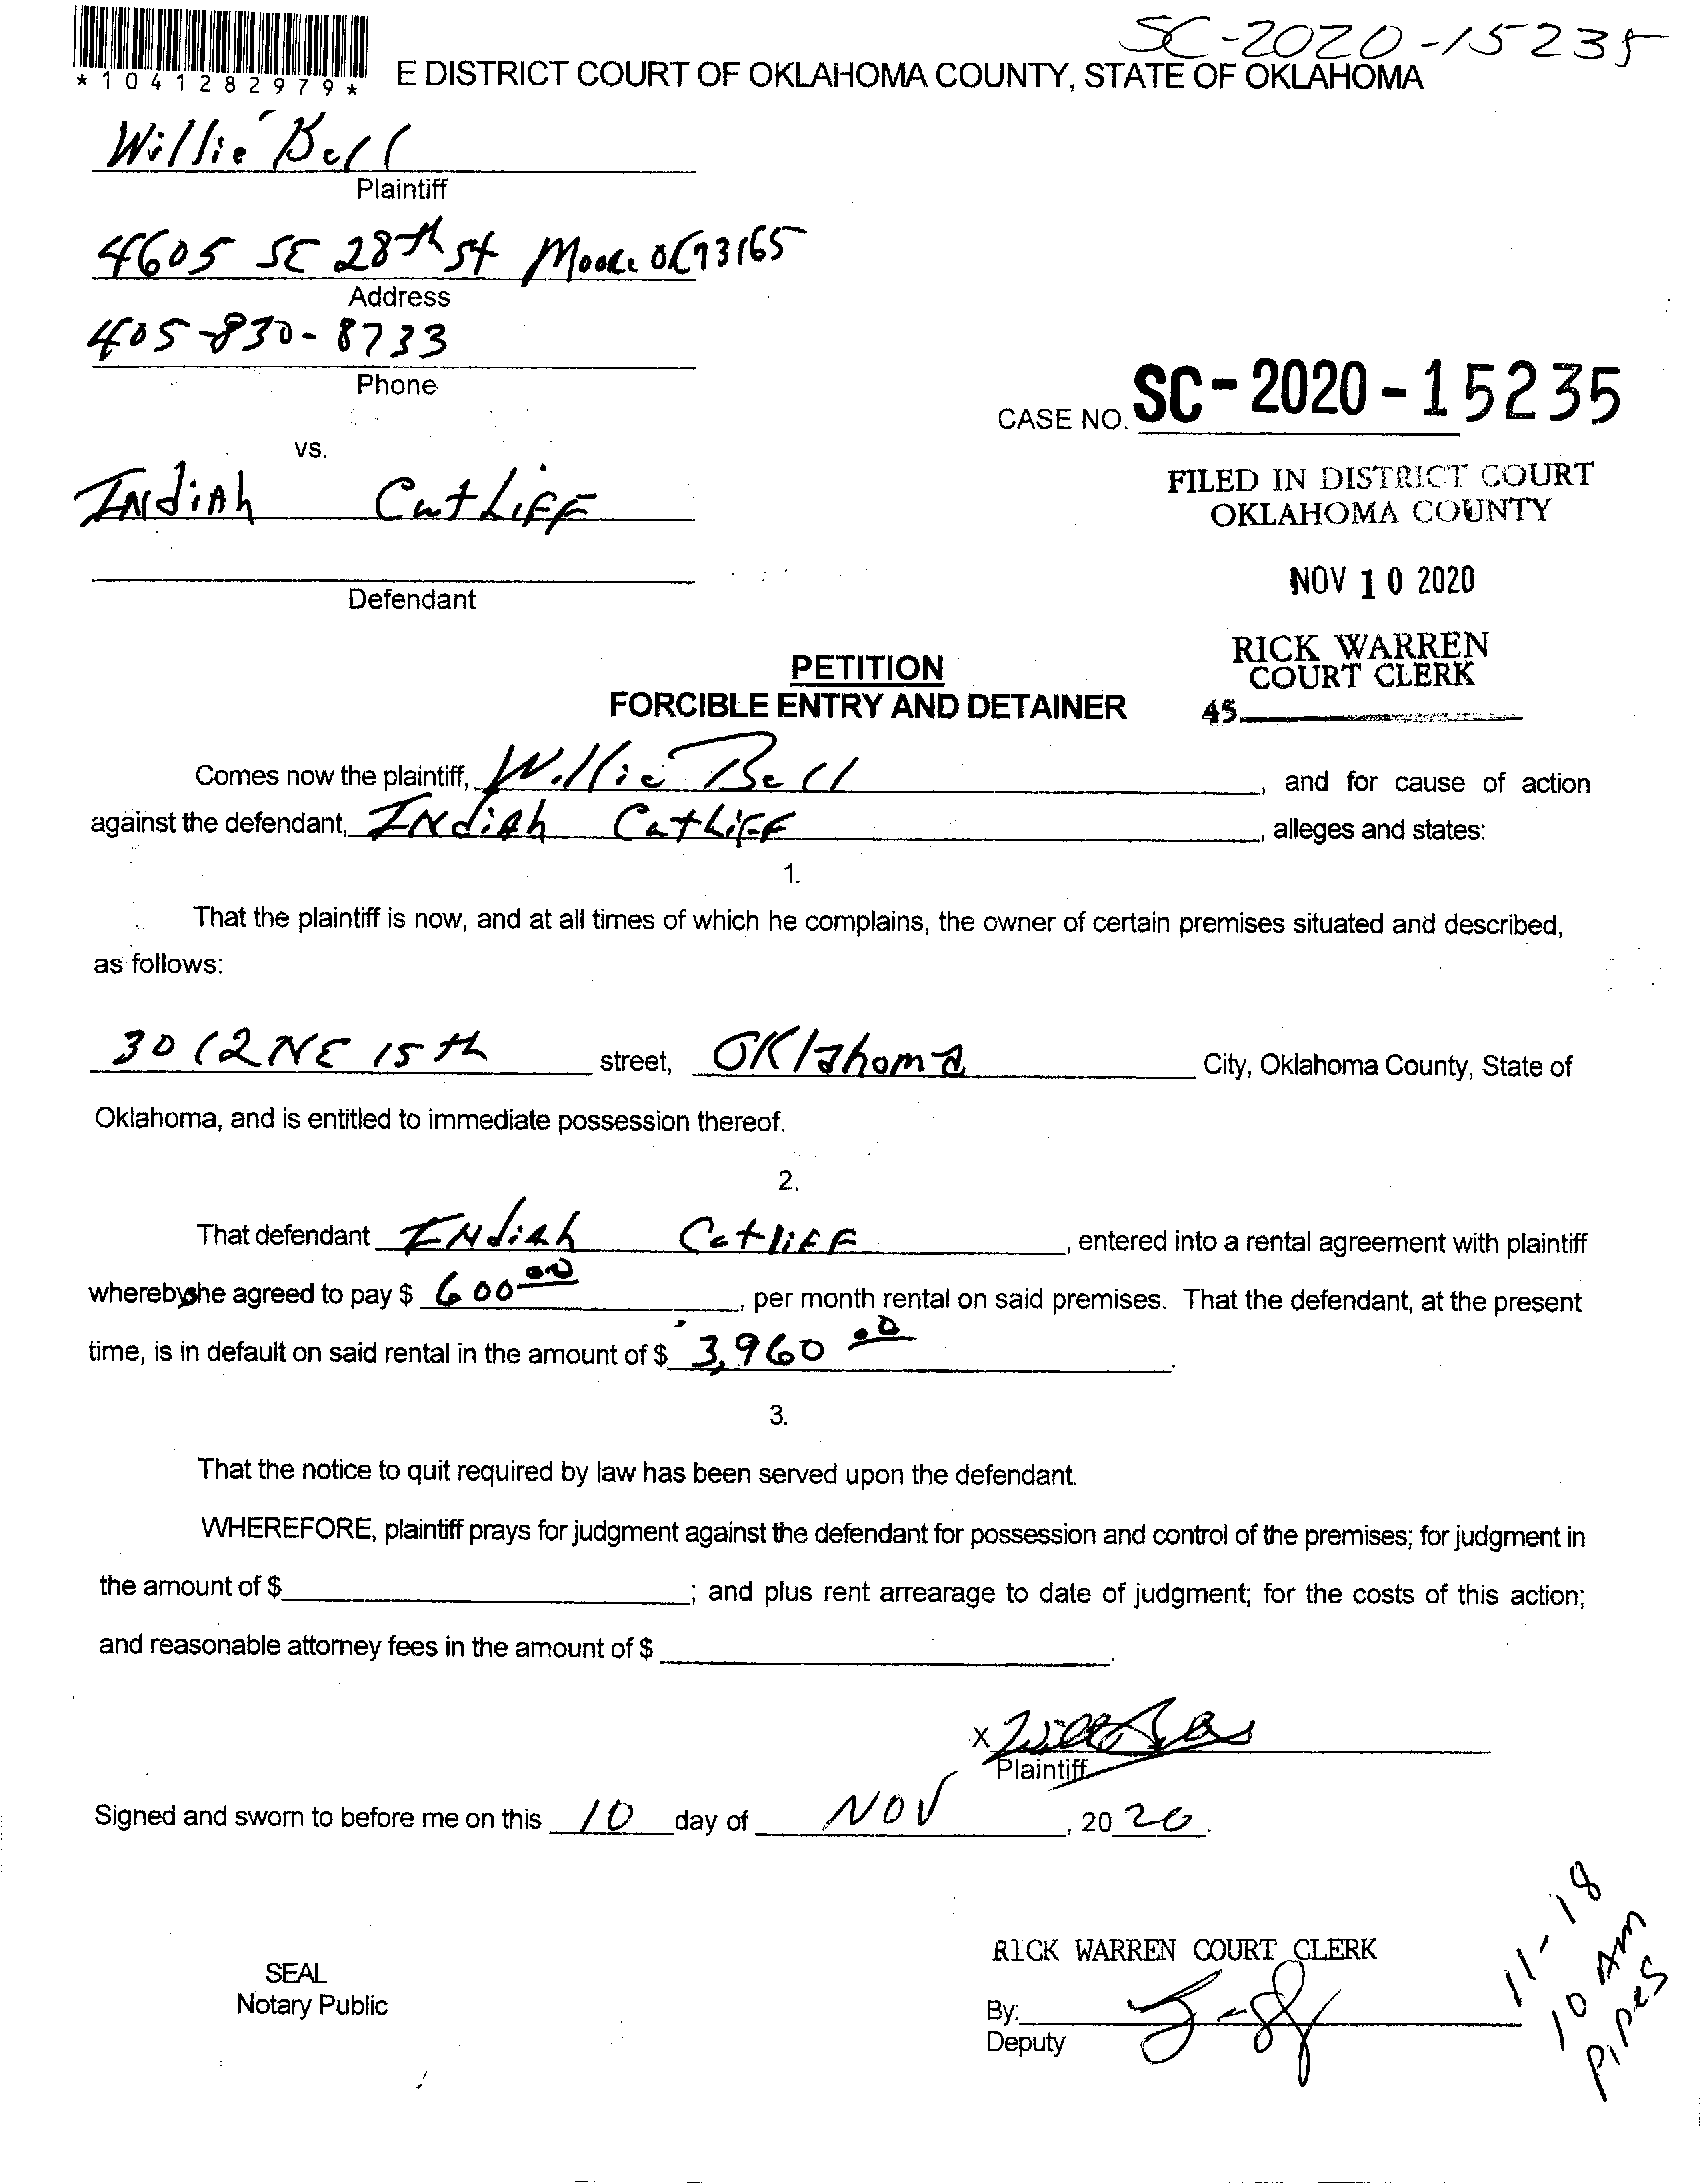 SC-2020-15235
*1041282979*
E DISTRICT COURT OF OKLAHOMA COUNTY, STATE OF OKLAHOMA
Willie Bell
Plaintiff
4605 SE 28th st Moore OK 73165
Address
405-830-8733
Phone
CASE NO. SC-2020-15235
vs.
FILED IN DISTRICT COURT
OKLAHOMA COUNTY
Indiah CatLiFF
NOV 10 2020
Defendant
RICK WARREN
COURT CLERK
45
PETITION
FORCIBLE ENTRY AND DETAINER
Comes now the plaintiff, Willie Bell, and for cause of action
against the defendant, Indiah CatLiFF, alleges and states:
1.
That the plaintiff is now, and at all times of which he complains, the owner of certain premises situated and described,
as follows:
3012 NE 15th street, Oklahoma City, Oklahoma County, State of
Oklahoma, and is entitled to immediate possession thereof.
2.
That defendant Indiah CatliFF, entered into a rental agreement with plaintiff
wherebyshe agreed to pay $ 600.00, per month rental on said premises. That the defendant, at the present
time, is in default on said rental in the amount of $ 3,960.00.
3.
That the notice to quit required by law has been served upon the defendant.
WHEREFORE, plaintiff prays for judgment against the defendant for possession and control of the premises; for judgment in
the amount of $ ; and plus rent arrearage to date of judgment; for the costs of this action;
and reasonable attorney fees in the amount of $ .
x
Plaintiff
Signed and sworn to before me on this 10 day of NOV, 2020.
RICK WARREN COURT CLERK
SEAL
Notary Public
By:
Deputy
11-18
10 AM
Pipes